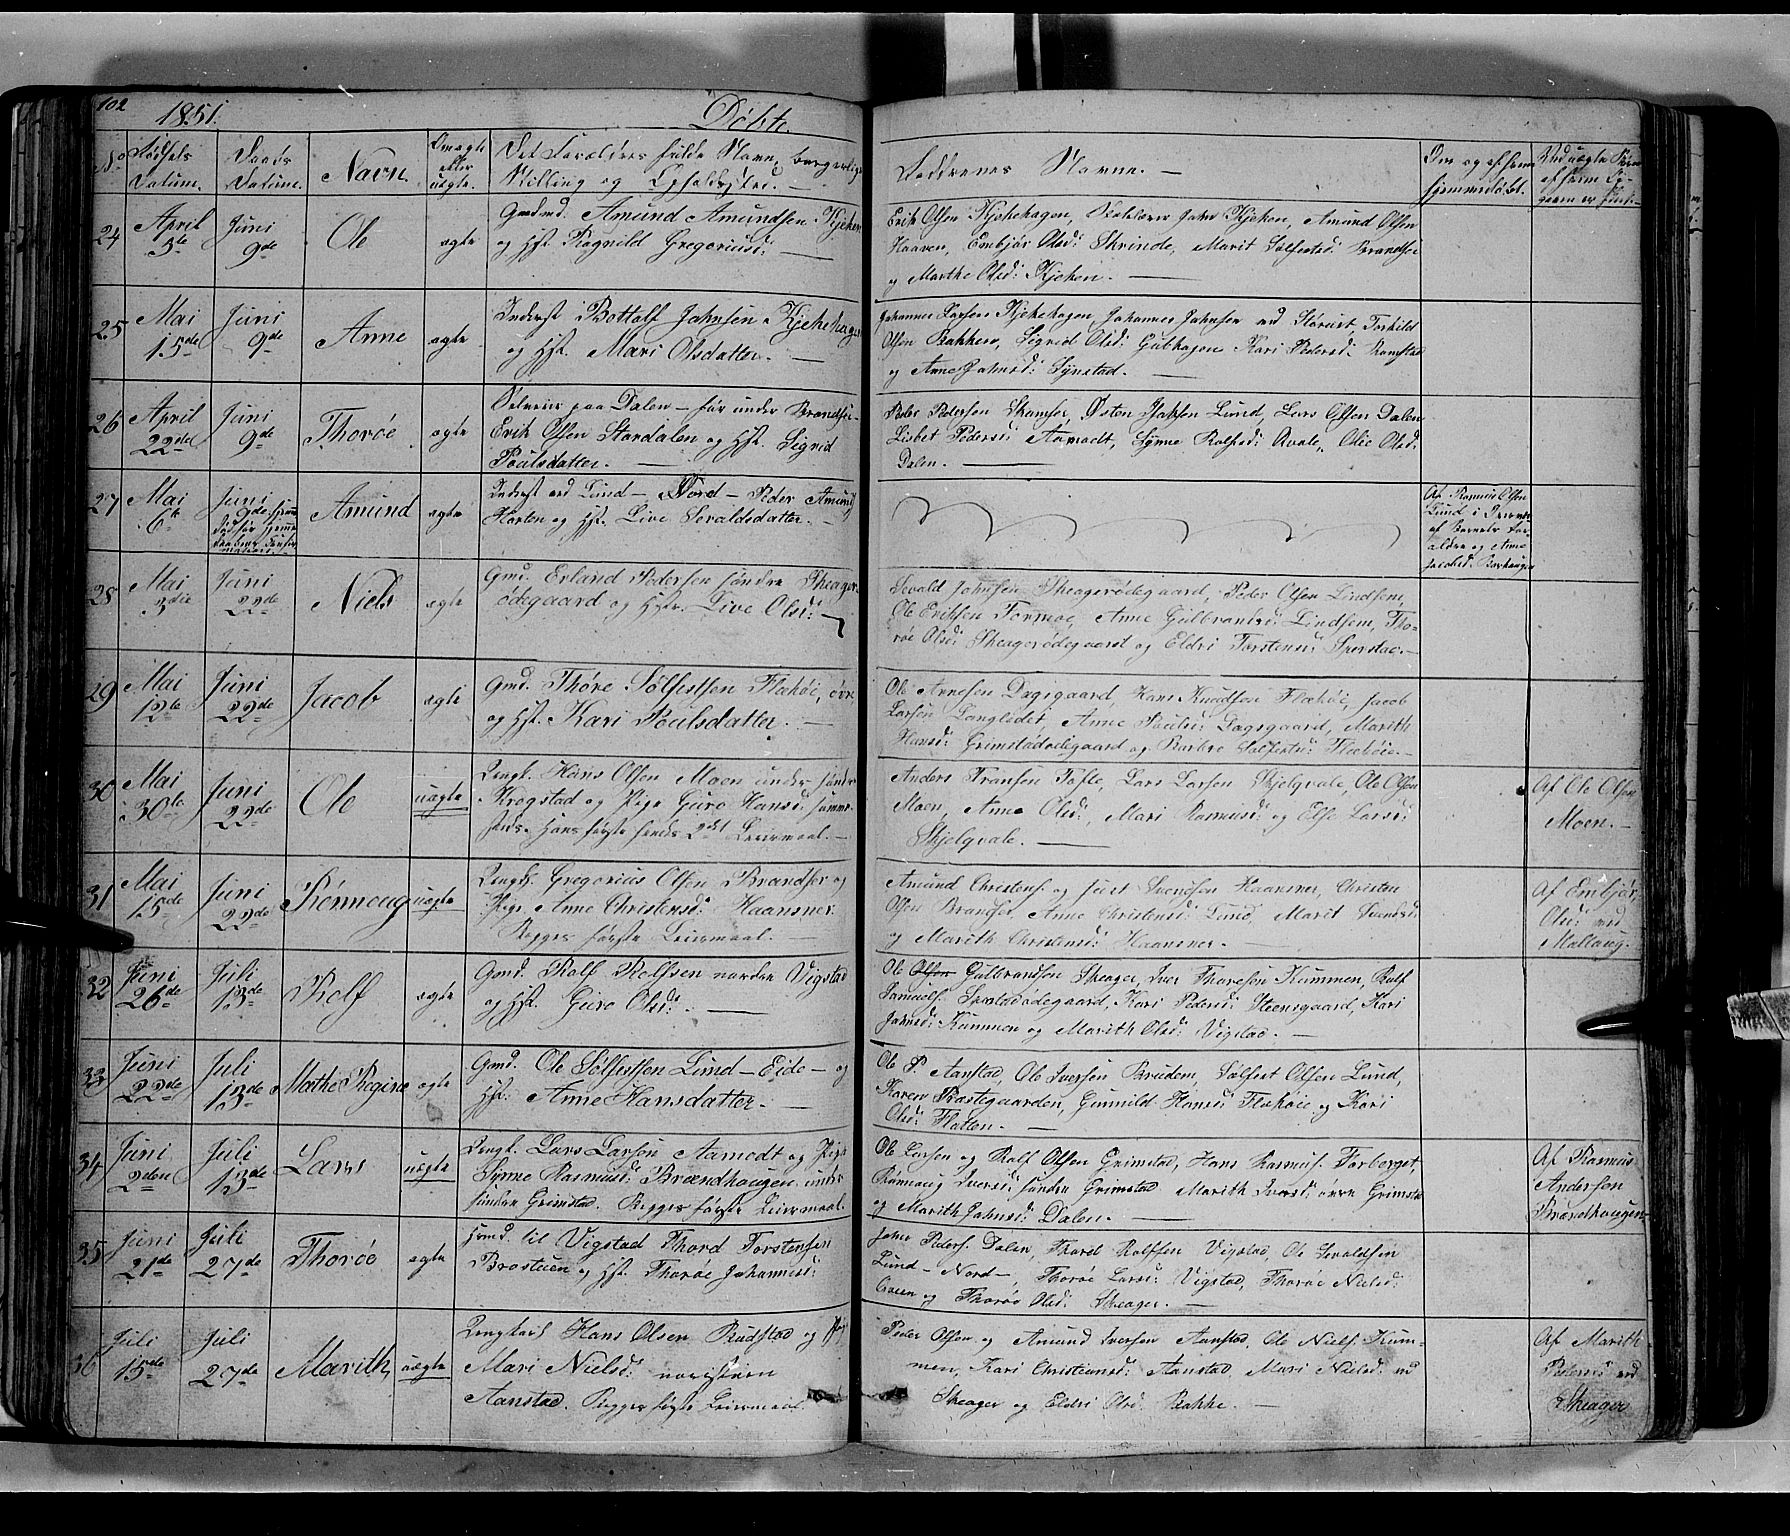 102
1851.
Døbte.
No
Fødsels Datum.
Daabs Datum.
Navn
Om ægte eller uægte.
Det Forældres fulde Navn, borgerlige
Stilling og Opholdssted. —
Faddrenes Navne. —
Om og af hvem
hjemmedøbt.
24
April
5te
Juni
9de
Ole
ægte
Gmd. Amund Amundsen Kjøken
og Hst. Ragnild Gregoriusd: —
Erik Olsen Kjøkehagen, John Kjøken, Amund Olsen
Haaven, Embjør Olsd: Skrinde, Marit Sølfestsd: Brandser
og Marthe Olsd: Kjøken. —
25
Mai
15de
Juni
9de
Anne
ægte
Inderst Bottolf Johnsen Kjøkehagen
og Hst. Mari Olsdatter. —
Johannes Larsen Kjøkehagen, Johannes Johnsen, Torkild
Olsen Bakken, Sigrid Olsd: Kari Pedersd: Ramstad
og Anne Johnsd: Synstad. —
26
April
22de
Juni
9de
Thorøe
ægte
paa Dalen — før under Brandser —
Erik Olsen Stordalen og Hst. Sigrid
Poulsdatter. —
Peder Pedersen Skamser, Østen Lund, Lars Olsen Dalen
Lisbet Pedersd: Aamodt, Synne Rolfsd: Qvale, Olie Olsd:
Dalen. —
27
Mai
6te
Juni
9de
Amund
ægte
Inderst ved Lund — Nord — Peder Amund
Horten og Hst. Live Sevaldsdatter. —
Af Rasmus Olsen
Lund i
af Barnets For-
ældre og Anne
Jacobsd.
28
Mai
3die
Juni
22de
Niels
ægte
Gmd. Erland Pedersen søndre Skeager
ødegaard og Hst. Live Olsd: —
Sevald Johnsen Skeagerødegaard, Peder Olsen Lindsem,
Ole Eriksen Formoe, Anne Gulbrandsd: Lindsem, Tho-
røe Olsd: Skeagerødegaard og Eldri Torstensd: Sperstad. —
29
Mai
12te
Juni
22de
Jacob
ægte
Gmd. Thore Sølfestsen Flækøie, øvre
og Hst. Kari Poulsdatter. —
Ole Arnesen Dagsgaard, Hans Knudsen Flækøie, Jacob
Larsen Langledet, Anne Poulsd: Dagsgaard, Marith
Hansd: Grimstadødegaard og Barbro Sølfestsd: Flækøie. —
30
Mai
30te
Juni
22de
Ole
uægte
Ungk. Hans Olsen Moen under søndre
Krogstad og Pige Guro Hansd: samme-
steds. Hans første hends 2det Leiermaal. —
Anders Fransen Tofte, Lars Larsen Skjelqvale, Ole Olsen
Moen, Anne Olsd: Mari Rasmusd: og Else Larsd:
Skjelqvale. —
Af Ole Olsen
Moen. —
31
Mai
15de
Juni
22de
Rønnoug
uægte
Ungk. Gregorius Olsen Brandser og
Pige Anne Christensd: Haansner.
Begges første Leiermaal. —
Amund Christens. og Juert Svendsen Haansner, Christen
Olsen Brandser, Anne Christensd: Lund, Marit Svendsd:
og Marith Christensd: Haansner. —
Af Embjør
Olsd: ved
Mallaug.
32
Juni
26de
Juli
13de
Rolf
ægte
Gmd. Rolf Rolfsen nordre Vigstad
og Hst. Guro Olsd: —
Ole Olsen Gulbrandsen Skeager, Iver Thoresen Kummen, Rolf
Samuels. Kari Pedersd: Steensgaard, Kari
Johnsd: Kummen og Marith Olsd: Vigstad. —
33
Juni
22de
Juli
13de
Mathe Regine
ægte
Gmd. Ole Sølfestsen Lund — Eide — og
Hst. Anne Hansdatter. —
Ole P. Aanstad, Ole Iversen Bruden, Sølfest Olsen Lund,
Karen Præstegaarden, Gunnild Hansd: Flækøie og Kari
Olsd: Flatten. —
34
Juni
2den
Juli
13de
Lars
uægte
Ungk. Lars Larsen Aamodt og Pige
Synne Rasmusd: Brændhaugen under
søndre Grimstad. Begges første Leiermaal.
Ole Larsen og Rolf Olsen Grimstad, Hans Rasmus. Forberget,
Rønnaug Iversd: søndre Grimstad Marith Iversd: øvre Grimstad
og Marith Johnsd: Dalen. —
Af Rasmus
Andersen
Brændhaugen
35
Juni
21de
Juli
27de
Thorøe
ægte
Hmd. til Vigstad Thord Torstensen
Brostuen og Hst. Thorøe Johannesd:
John Peders. Dalen, Thord Rolfsen Vigstad, Ole Sevaldsen
Lund — Nord —, Thorøe Larsd: Vigstad, Thorøe Nielsd:
og Thorøe Olsd: Skeager. —
36
Juli
15de
Juli
27de
Marith
uægte
Ungkarl Hans Olsen Rudstad og Pige
Mari Nielsd:
Aanstad. Begges første Leiermaal.
Peder Olsen og Amund Iversen Aanstad, Ole Niels. Kum-
men, Kari Christiansd: Aanstad Mari Nielsd: ved
Skeager og Eldri Olsd: Bakke. —
Af Marith
Pedersd: ved
Skeager